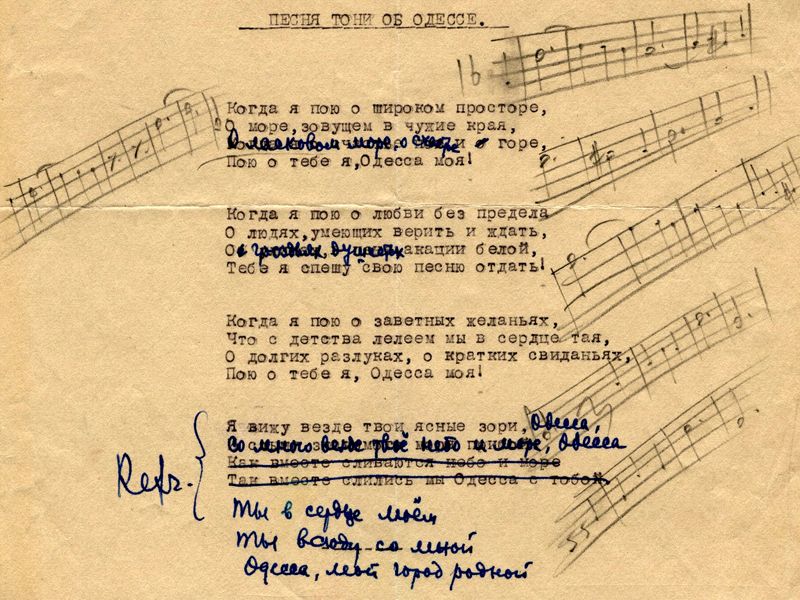 ПЕСНЯ ТОНИ ОБ ОДЕССЕ.
16
Когда я пою о широком просторе,
О море, зовущем в чужие края,
О ласковом море, о счастье и горе,
Пою о тебе я, Одесса моя!
Когда я пою о любви без предела
О людях, умеющих верить и ждать,
О гроздьях душистых акации белой,
Тебе я спешу свою песню отдать!
Когда я пою о заветных желаньях,
Что с детства лелеем мы в сердце тая,
О долгих разлуках, о кратких свиданьях,
Пою о тебе я, Одесса моя!
Я вижу везде твои ясные зори, Одесса,
Со мною везде твоё небо и море, Одесса
Как вместе сливаются небо и море
Так вместе слились мы Одесса с тобой.
Refr.
Ты в сердце моём
Ты всюду со мной
Одесса, мой город родной